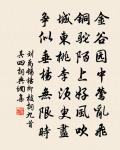 金谷園中鶯亂飛
銅駝陌上好風吹
城東桃李須臾盡
爭似垂楊無限時
劉禹錫楊柳枝詞九首
其四詞典調集